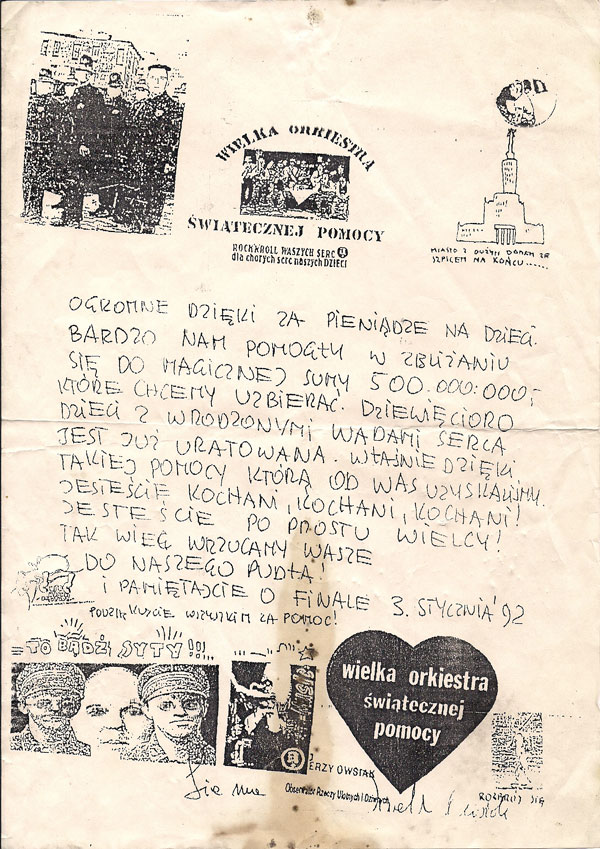 WIELKA ORKIESTRA
ŚWIĄTECZNEJ POMOCY
ROCK'N'ROLL WASZYCH SERC
dla chorych serc naszych DZIECI
MIASTO Z DUŻYM DOMEM ZE
SZPICEM NA KOŃCU......
OGROMNE DZIĘKI ZA PIENIĄDZE NA DZIECI.
BARDZO NAM POMOGŁY W ZBLIŻANIU
SIĘ DO MAGICZNEJ SUMY 500.000.000,-
KTÓRE CHCEMY UZBIERAĆ. DZIEWIĘCIORO
DZIECI Z WRODZONYMI WADAMI SERCA
JEST JUŻ URATOWANA. WŁAŚNIE DZIĘKI
TAKIEJ POMOCY KTÓRĄ OD WAS UZYSKALIŚMY.
JESTEŚCIE KOCHANI, KOCHANI, KOCHANI!
JESTEŚCIE PO PROSTU WIELCY!
TAK WIĘC WRZUCAMY WASZE
DO NASZEGO PUDŁA!
I PAMIĘTAJCIE O FINALE 3. STYCZNIA '92
PODZIĘKUJCIE WSZYSTKIM ZA POMOC!
TO BĄDŹ SYTY!!!..
wielka orkiestra
świątecznej
pomocy
JERZY OWSIAK
Obserwator Rzeczy Ulotnych i Dziwnych
Sie ma